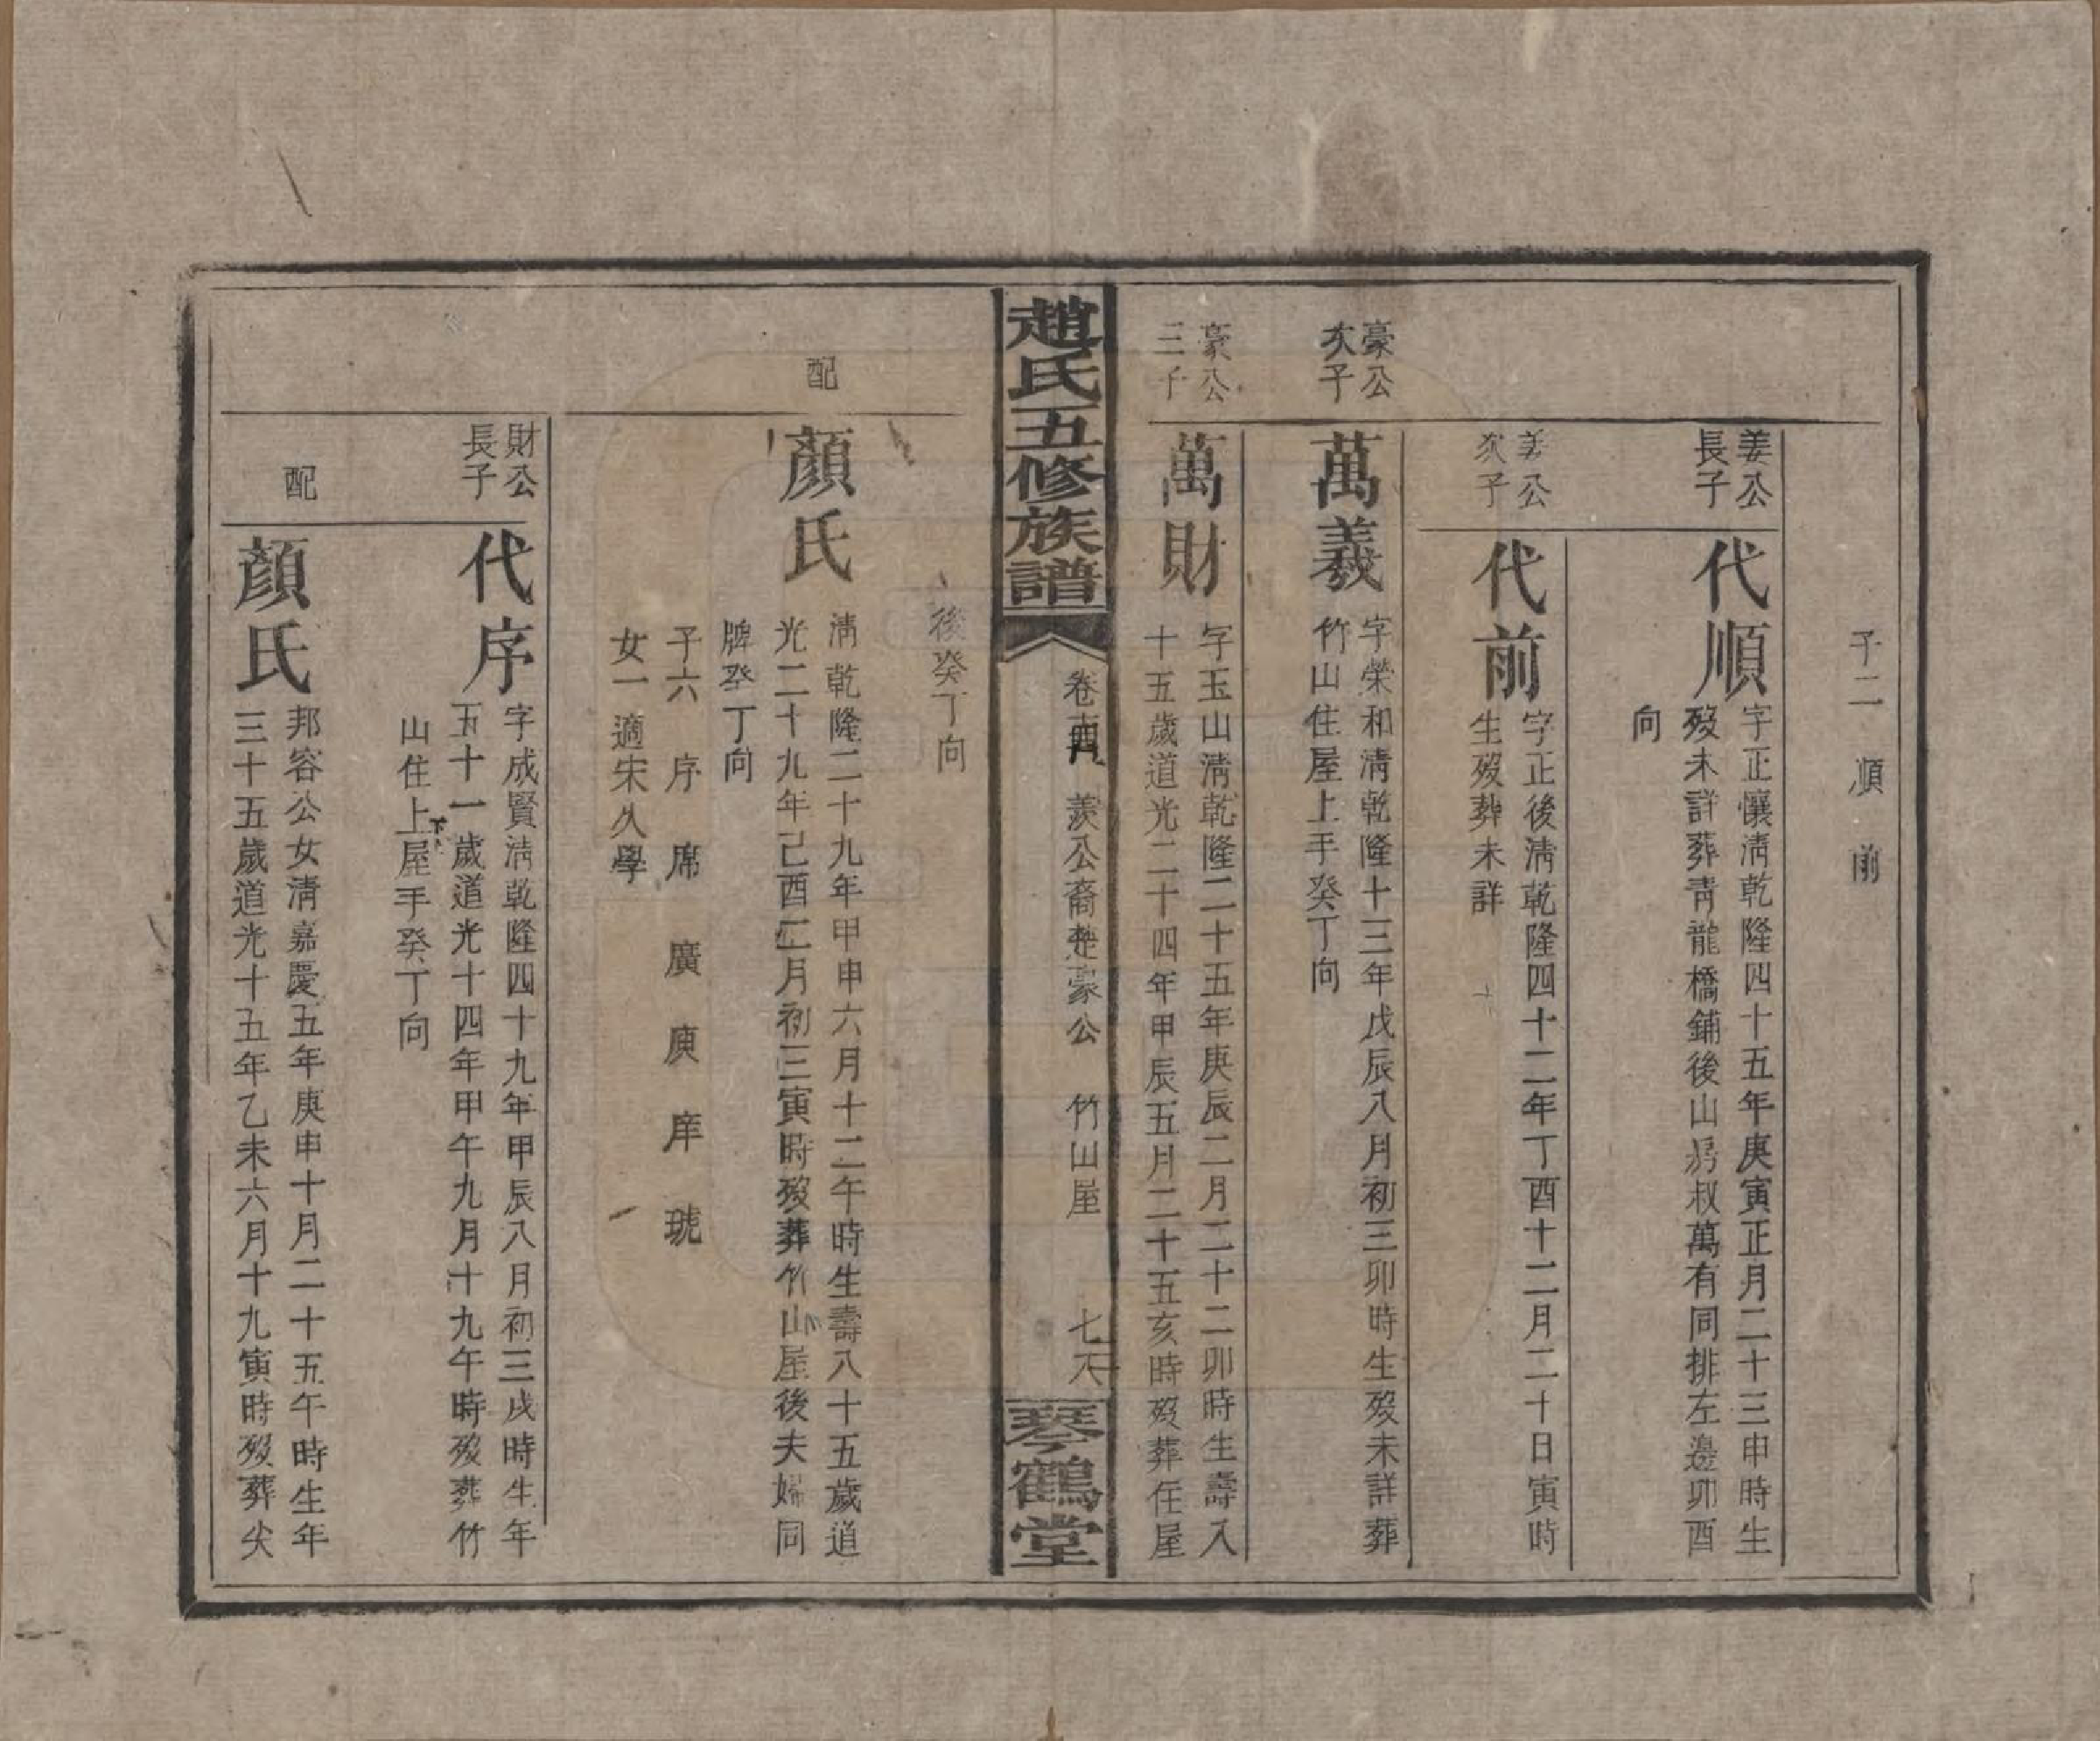 子二　順　前
姜公
長子
代順
字正懷清乾隆四十五年庚寅正月二十三申時生
歿未詳葬青龍橋鋪後山房叔萬有同排左邊卯酉
向
姜公
次子
代前
字正後清乾隆四十二年丁酉十二月二十日寅時
生歿葬未詳
豪公
次子
萬義
字榮和清乾隆十三年戊辰八月初三卯時生歿未詳葬
竹山住屋上手癸丁向
豪公
三子
萬財
字玉山清乾隆二十五年庚辰二月二十二卯時生壽八
十五歲道光二十四年甲辰五月二十五亥時歿葬住屋
趙氏五修族譜
卷　羨公裔楚豪公　竹山屋
七八
琴鶴堂
後癸丁向
配
顏氏
清乾隆二十九年甲申六月十二午時生壽八十五歲道
光二十九年己酉二月初三寅時歿葬竹山屋後夫婦同
牌癸丁向
子六　序　席　廣　庾　庠　琥
女一適宋久學
財公
長子
代序
字成賢清乾隆四十九年甲辰八月初三戌時生年
五十一歲道光十四年甲午九月十九午時歿葬竹
山住上屋手癸丁向
配
顏氏
邦容公女清嘉慶五年庚申十月二十五午時生年
三十五歲道光十五年乙未六月十九寅時歿葬尖